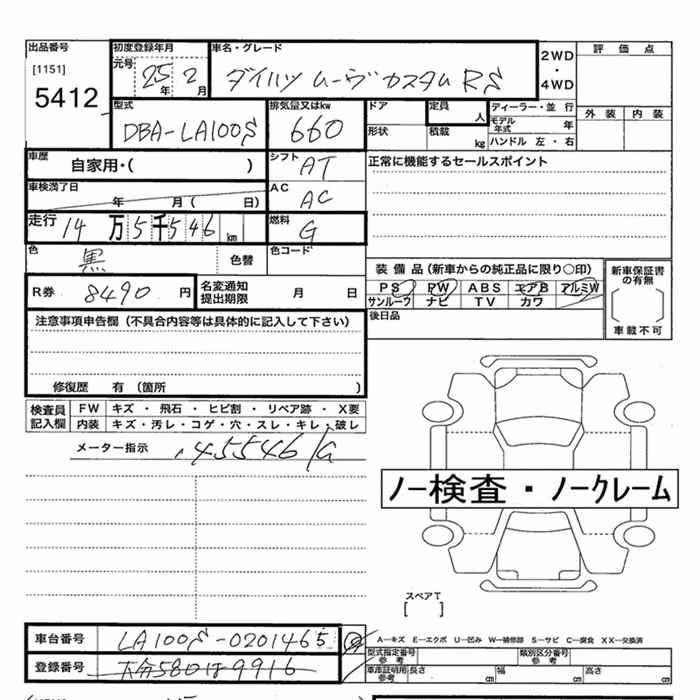 出品番号 初度登録年月 車名・グレード 2WD・4WD 評価点
[1151] 元号 25年 2月 ダイハツ ムーヴカスタムRS
5412 外装 内装
型式 排気量又はkw ドア 定員 人 ディーラー・並行
DBA-LA100S 660 形状 積載 kg モデル年式 年
ハンドル 左・右
車歴 自家用・( ) シフト AT 正常に機能するセールスポイント
車検満了日 年 月( 日) AC AC
走行 14万5千546km 燃料 G
色 黒 色替 色コード
装備品(新車からの純正品に限り○印) 新車保証書の有無
R券 8490円 名変通知提出期限 月 日 PS PW ABS エアB アルミW
サンルーフ ナビ TV カワ
注意事項申告欄(不具合内容等は具体的に記入して下さい) 後日品 車載不可
修復歴 有(箇所 )
検査員記入欄 FW キズ・飛石・ヒビ割・リペア跡・X要
内装 キズ・汚レ・コゲ・穴・スレ・キレ・破レ
メーター指示 45546
ノー検査・ノークレーム
スペアT
[ ]
車台番号 LA100S-0201465
A—キズ E—エクボ U—凹み W—補修部 S—サビ C—腐食 XX—交換済
登録番号 大分580は9916
型式指定番号 参考 類別区分番号 参考
車庫証明用 参考 長さ cm 幅 cm 高さ cm